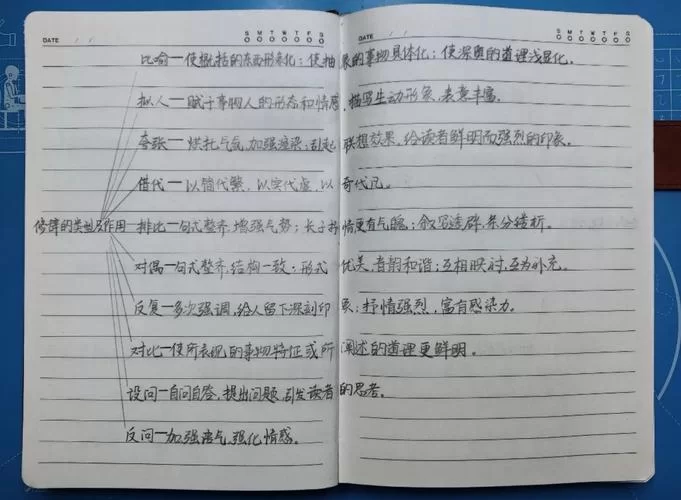 DATE S M T W T F S
DATE S M T W T F S
比喻—使概括的东西形象化；使抽象的事物具体化；使深奥的道理浅显化。
拟人—赋予事物人的形态和情感，描写生动形象，表意丰富。
夸张—烘托气氛，加强渲染；引起联想效果，给读者鲜明而强烈的印象。
借代—以简代繁，以实代虚，以奇代凡。
修辞的类型及作用 排比—句式整齐，增强气势；长于抒情更有气魄；叙写透辟，条分缕析。
对偶—句式整齐，结构一致；形式优美，音韵和谐；互相映衬，互为补充。
反复—多次强调，给人留下深刻印象；抒情强烈，富有感染力。
对比—使所表现的事物特征或所阐述的道理更鲜明。
设问—自问自答，提出问题，引发读者的思考。
反问—加强语气，强化情感。